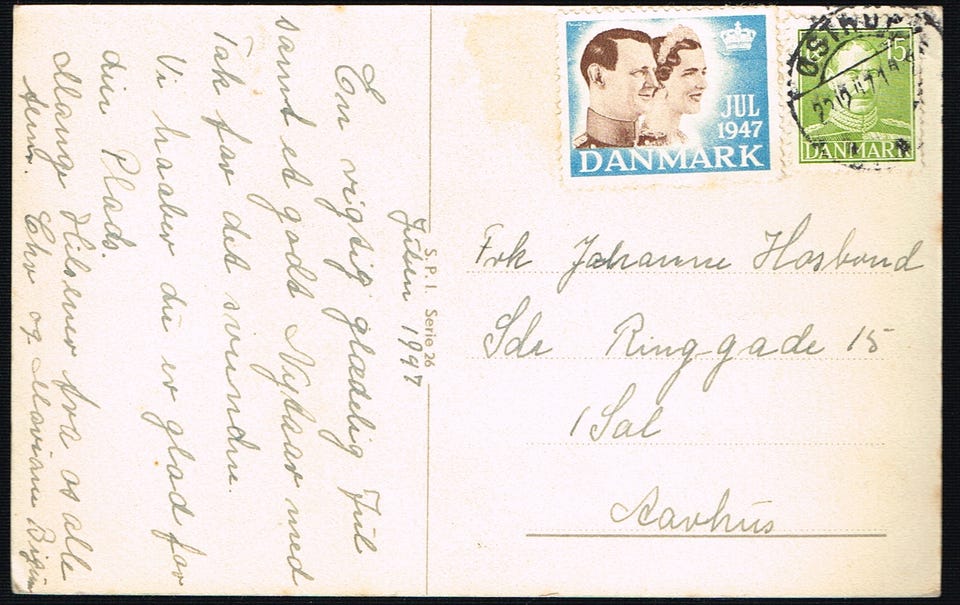 En rigtig glædelig Jul
samt et godt Nytaar med
Tak for det svundne.
Vi haaber du er glad for
din Plads.
Mange Hilsner fra os alle
hjem. Chr og Mariane
Julen 1947
S.P.I. Serie 26
JUL
1947
DANMARK
15
DANMARK
Frk Johanne Hosbond
Sdr Ringgade 15
1 Sal
Aarhus